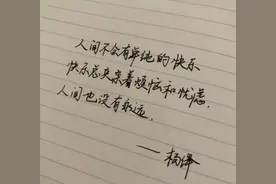 人间不会有单纯的快乐
快乐总夹杂着烦恼和忧虑，
人间也没有永远。
——杨绛